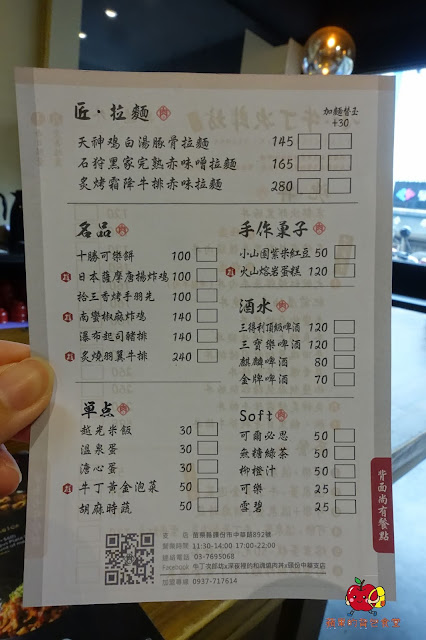 匠·拉麵
加麵替玉
+30
天神鸡白湯豚骨拉麵 145
石狩黑家完熟赤味噌拉麵 165
炙烤霜降牛排赤味拉麵 280
名品
十勝可樂餅 100
日本薩摩唐揚炸鸡 100
拾三香烤手羽先 100
南蠻椒麻炸鸡 140
瀑布起司豬排 140
炙燒翡翼牛排 240
手作菓子
小山園紫米紅豆 50
火山熔岩蛋糕 120
酒水
三得利頂級啤酒 120
三寶樂啤酒 120
麒麟啤酒 80
金牌啤酒 70
單点
越光米飯 30
溫泉蛋 30
溏心蛋 30
牛丁黃金泡菜 50
胡麻時蔬 50
Soft
可爾必思 50
無糖綠茶 50
柳橙汁 50
可樂 25
雪碧 25
背面尚有餐點
店 苗栗縣頭份市中華路892號
營業時間 11:30-14:00 17:00-22:00
連絡電話 03-7695068
Facebook 牛丁次郎坊x深夜裡的和魂燒肉丼x頭份中華支店
加盟專線 0937-717614